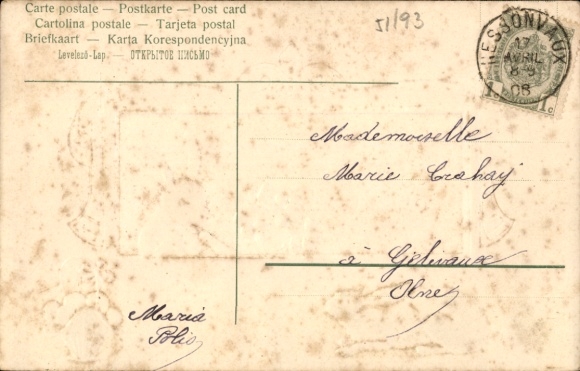 Carte postale – Postkarte – Post card
Cartolina postale – Tarjeta postal
Briefkaart – Karta Korespondencyjna
Levelező-Lap. – ОТКРЫТОЕ ПИСЬМО
51/93
NESSONVAUX
17
AVRIL
8-9
08
Mademoiselle
Marie Crahay
à Gelivaux
Olne
Maria
Polis